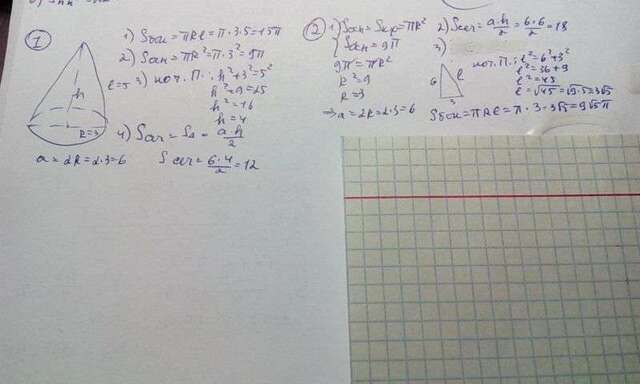 ①
1) Sбок = πRl = π·3·5 = 15π
2) Sосн = πR² = π·3² = 9π
3) по т. П.: h² + 3² = 5²
h² + 9 = 25
h² = 16
h = 4
l=5
h
R=3
4) Sсеч = S△ = a·h/2
a = 2R = 2·3 = 6
Sсеч = 6·4/2 = 12
②
1) Sосн = Sкр = πR²
{ Sосн = 9π
9π = πR²
R² = 9
R = 3
⇒ a = 2R = 2·3 = 6
2) Sсеч = a·h/2 = 6·6/2 = 18
3)
по т. П.: l² = 6² + 3²
l² = 36 + 9
l² = 45
l = √45 = √9·5 = 3√5
6
l
3
Sбок = πRl = π·3·3√5 = 9√5π